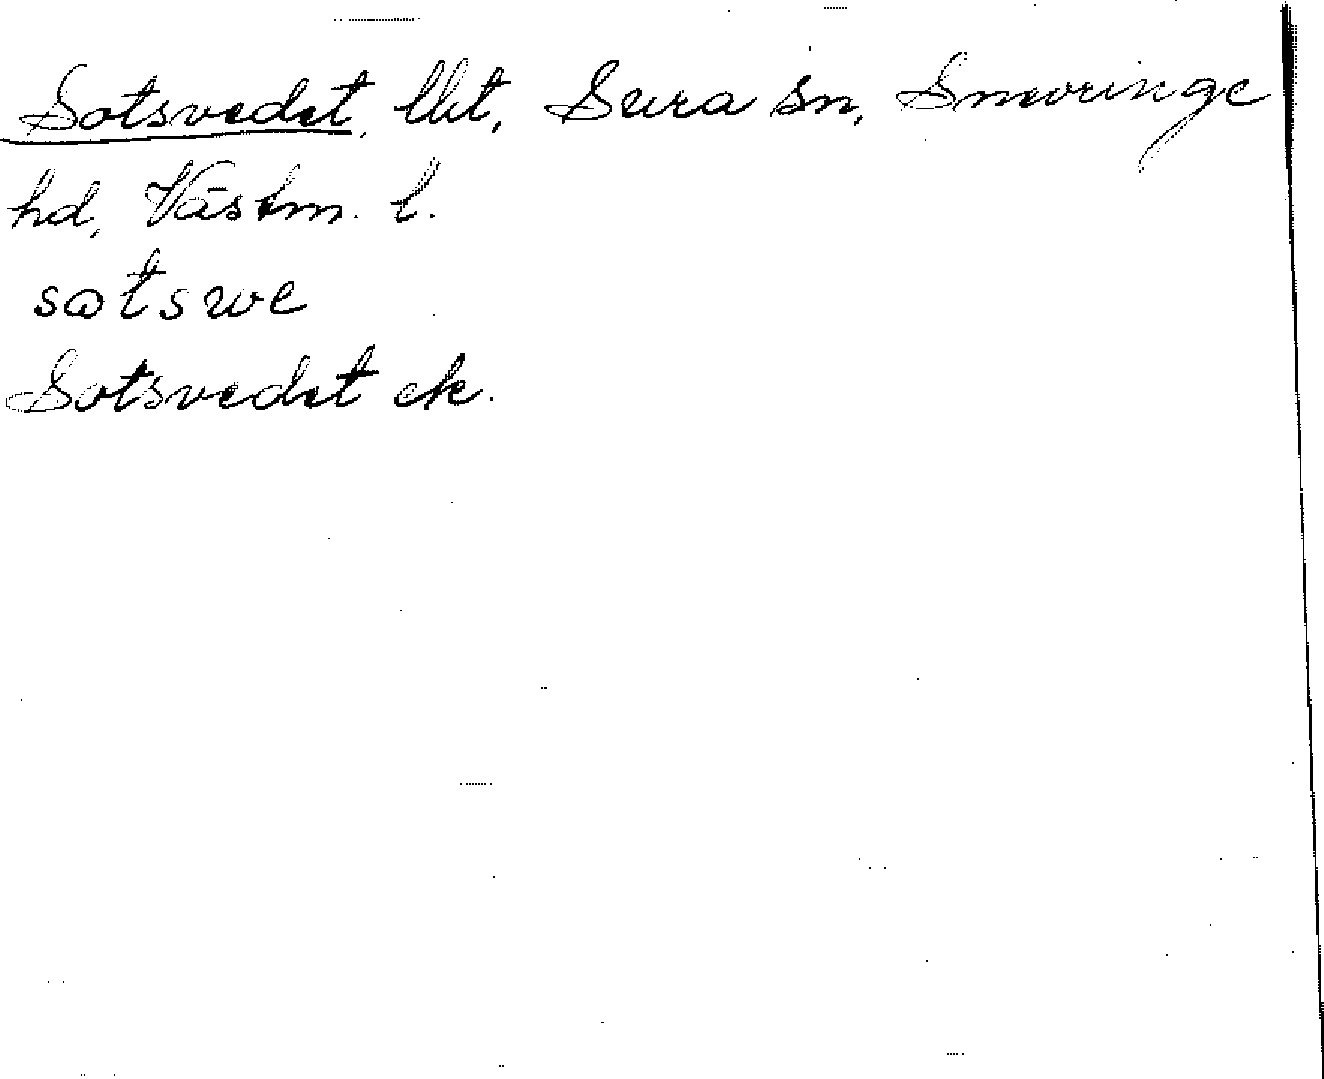 Sotsvedet, lht, Sura sn, Snevringe
hd, Västm. l.
sotsve
Sotsvedet ek.